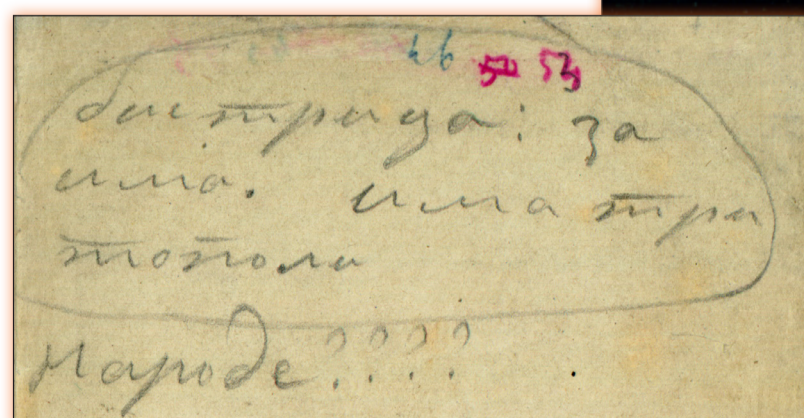 46 53
бистрица: за
има. има три
тополи
Народе????